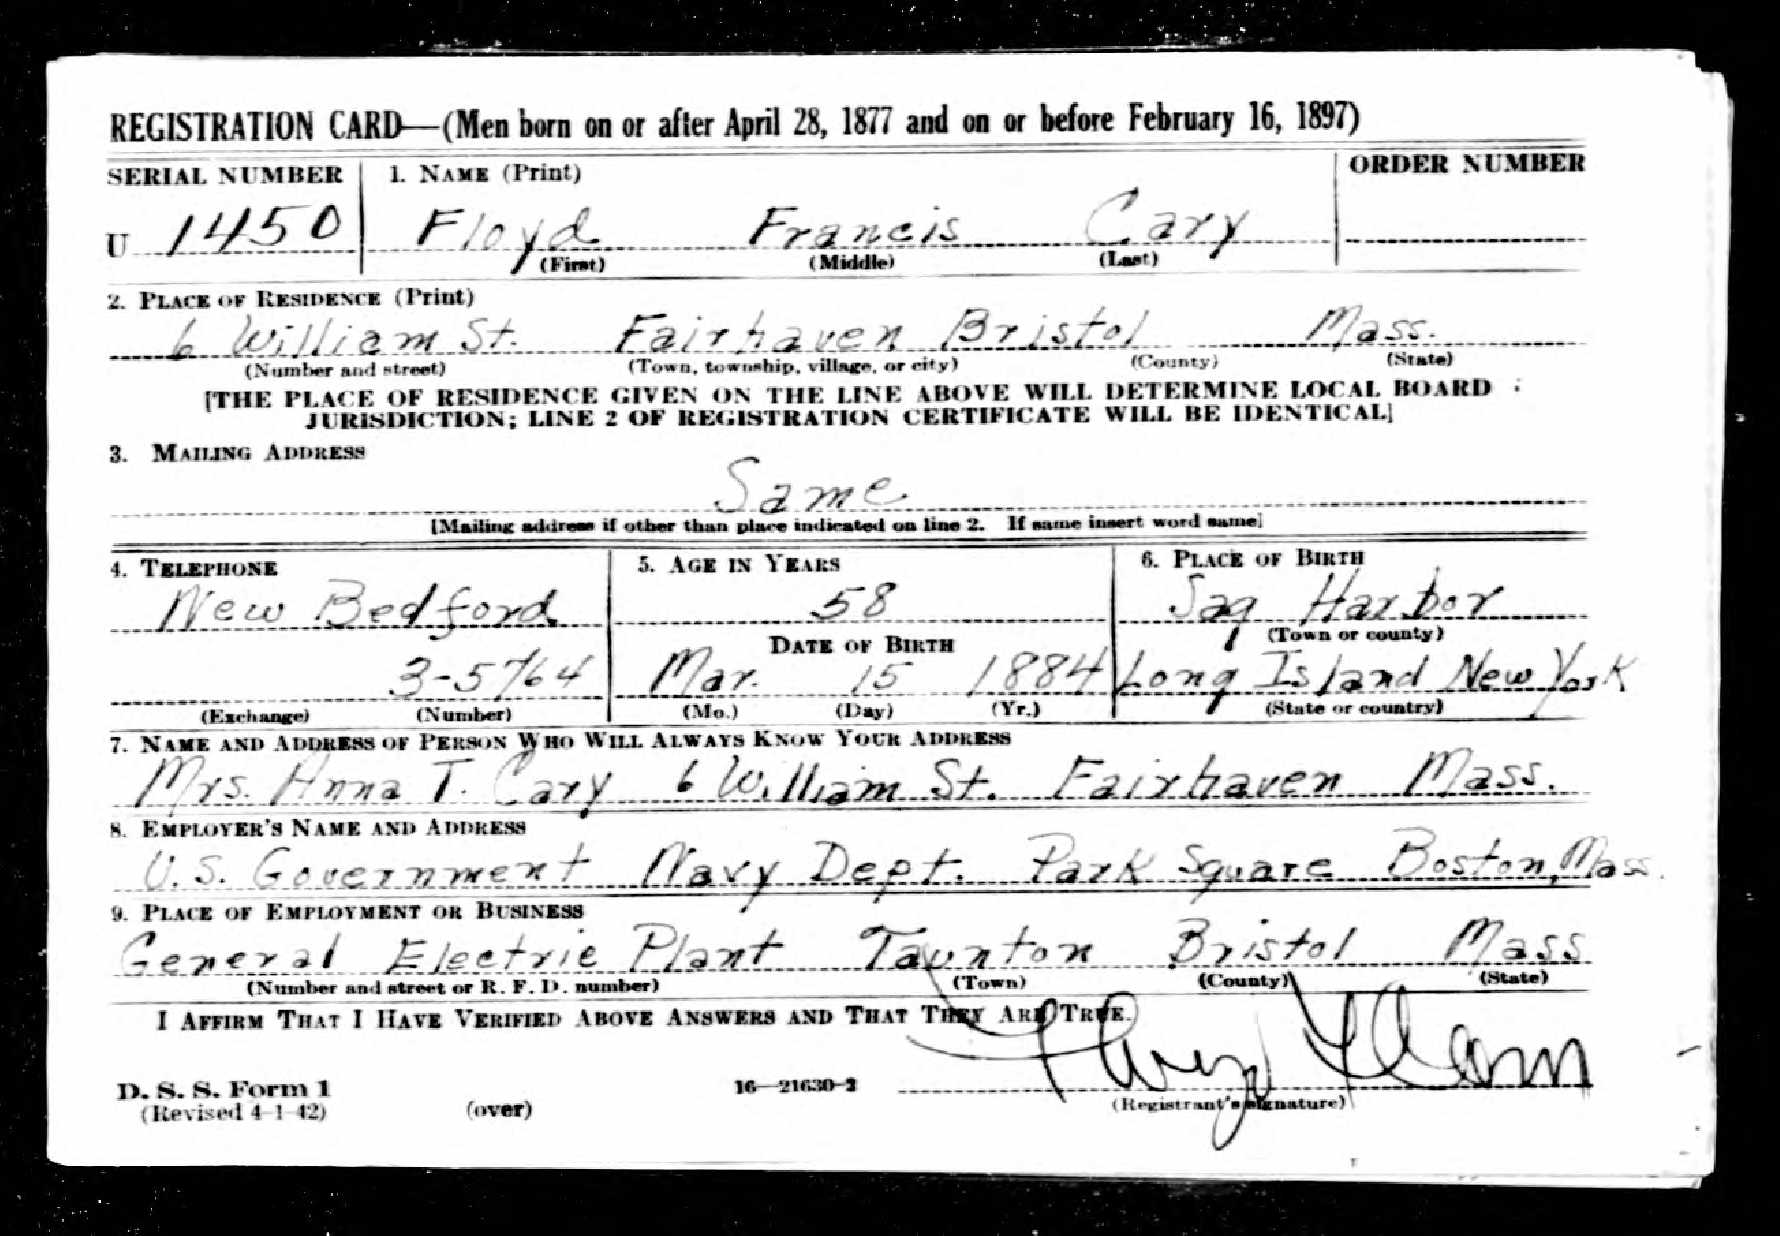 REGISTRATION CARD—(Men born on or after April 28, 1877 and on or before February 16, 1897)
SERIAL NUMBER 1. NAME (Print) ORDER NUMBER
U 1450 Floyd Francis Cary
(First) (Middle) (Last)
2. PLACE OF RESIDENCE (Print)
6 William St. Fairhaven Bristol Mass.
(Number and street) (Town, township, village, or city) (County) (State)
[THE PLACE OF RESIDENCE GIVEN ON THE LINE ABOVE WILL DETERMINE LOCAL BOARD
JURISDICTION; LINE 2 OF REGISTRATION CERTIFICATE WILL BE IDENTICAL]
3. MAILING ADDRESS
Same
[Mailing address if other than place indicated on line 2. If same insert word same]
4. TELEPHONE 5. AGE IN YEARS 6. PLACE OF BIRTH
New Bedford 58 Sag Harbor
DATE OF BIRTH (Town or county)
3-5764 Mar. 15 1884 Long Island New York
(Exchange) (Number) (Mo.) (Day) (Yr.) (State or country)
7. NAME AND ADDRESS OF PERSON WHO WILL ALWAYS KNOW YOUR ADDRESS
Mrs. Anna T. Cary 6 William St. Fairhaven Mass.
8. EMPLOYER'S NAME AND ADDRESS
U.S. Government Navy Dept. Park Square Boston, Mass.
9. PLACE OF EMPLOYMENT OR BUSINESS
General Electric Plant Taunton Bristol Mass
(Number and street or R. F. D. number) (Town) (County) (State)
I AFFIRM THAT I HAVE VERIFIED ABOVE ANSWERS AND THAT THEY ARE TRUE.
D. S. S. Form 1 16—21630-2
(Revised 4-1-42) (over) (Registrant's signature)